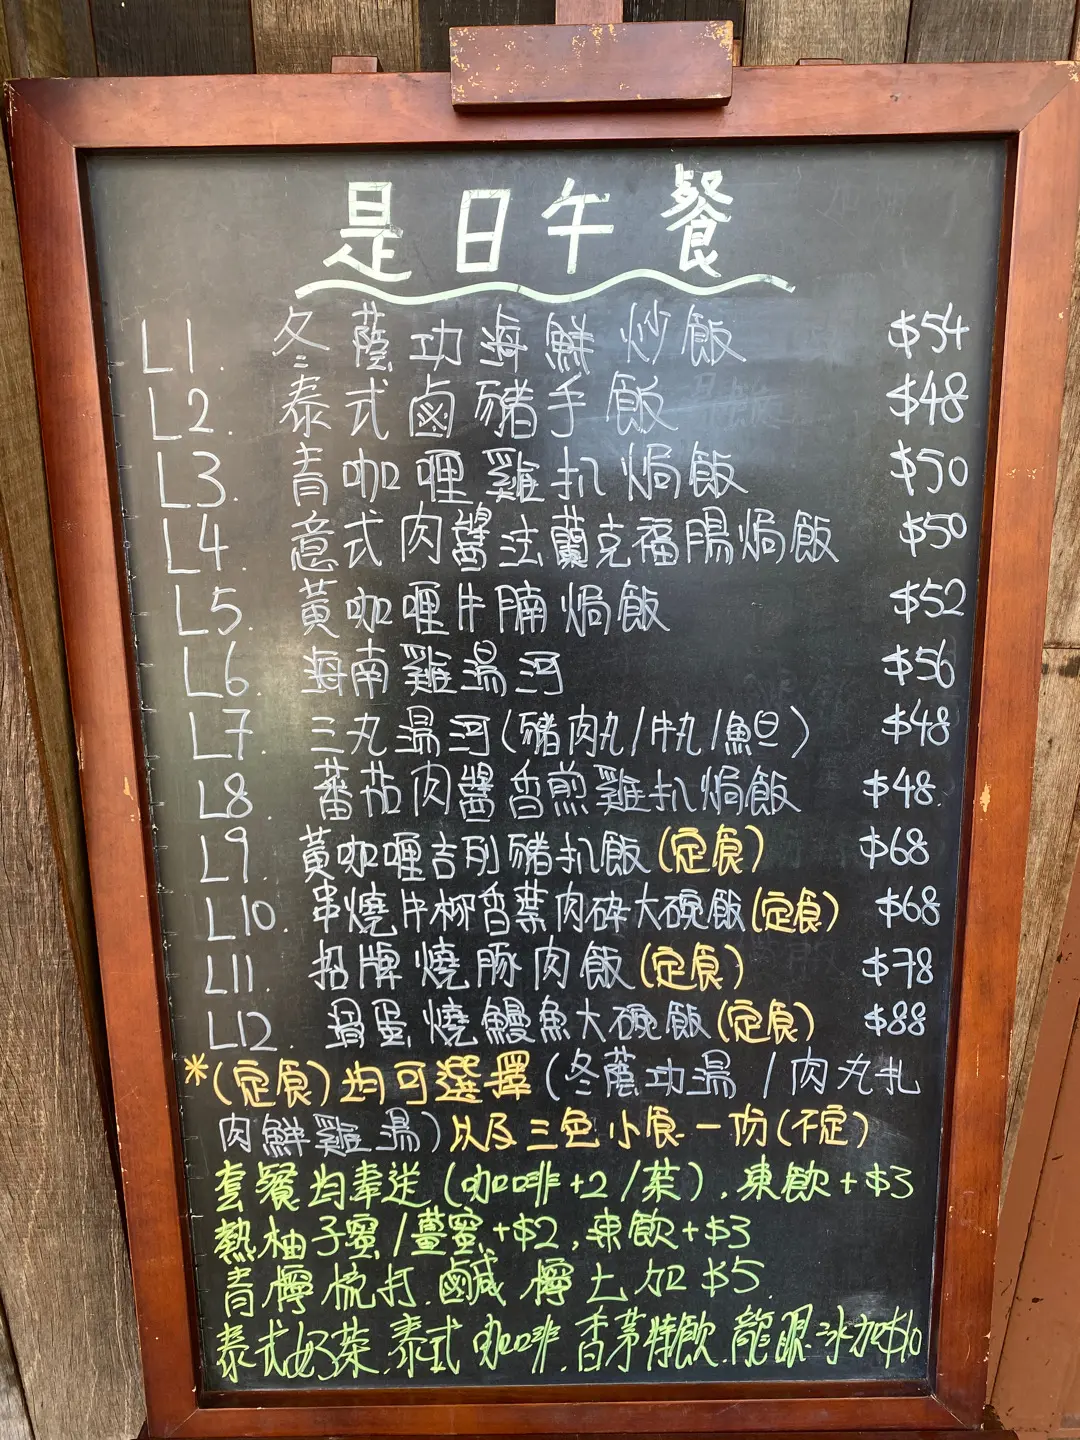 是日午餐
L1. 冬蔭功海鮮炒飯 $54
L2. 泰式鹵豬手飯 $48
L3. 青咖喱雞扒焗飯 $50
L4. 意式肉醬法蘭克福腸焗飯 $50
L5. 黃咖喱牛腩焗飯 $52
L6. 海南雞湯河 $56
L7. 三丸湯河(豬肉丸/牛丸/魚旦) $48
L8. 蕃茄肉醬香煎雞扒焗飯 $48.
L9. 黃咖喱吉列豬扒飯(定食) $68
L10. 串燒牛柳香葉肉碎大碗飯(定食) $68
L11. 招牌燒豚肉飯(定食) $78
L12. 滑蛋燒鰻魚大碗飯(定食) $88
*(定食)均可選擇(冬蔭功湯/肉丸扎
肉鮮雞湯)以及三色小食一份(不定)
套餐均奉送(咖啡+2/茶),凍飲+$3
熱柚子蜜/薑蜜+$2,凍飲+$3
青檸梳打.鹹檸七加$5
泰式奶茶.泰式咖啡.香茅特飲.龍眼冰加$10